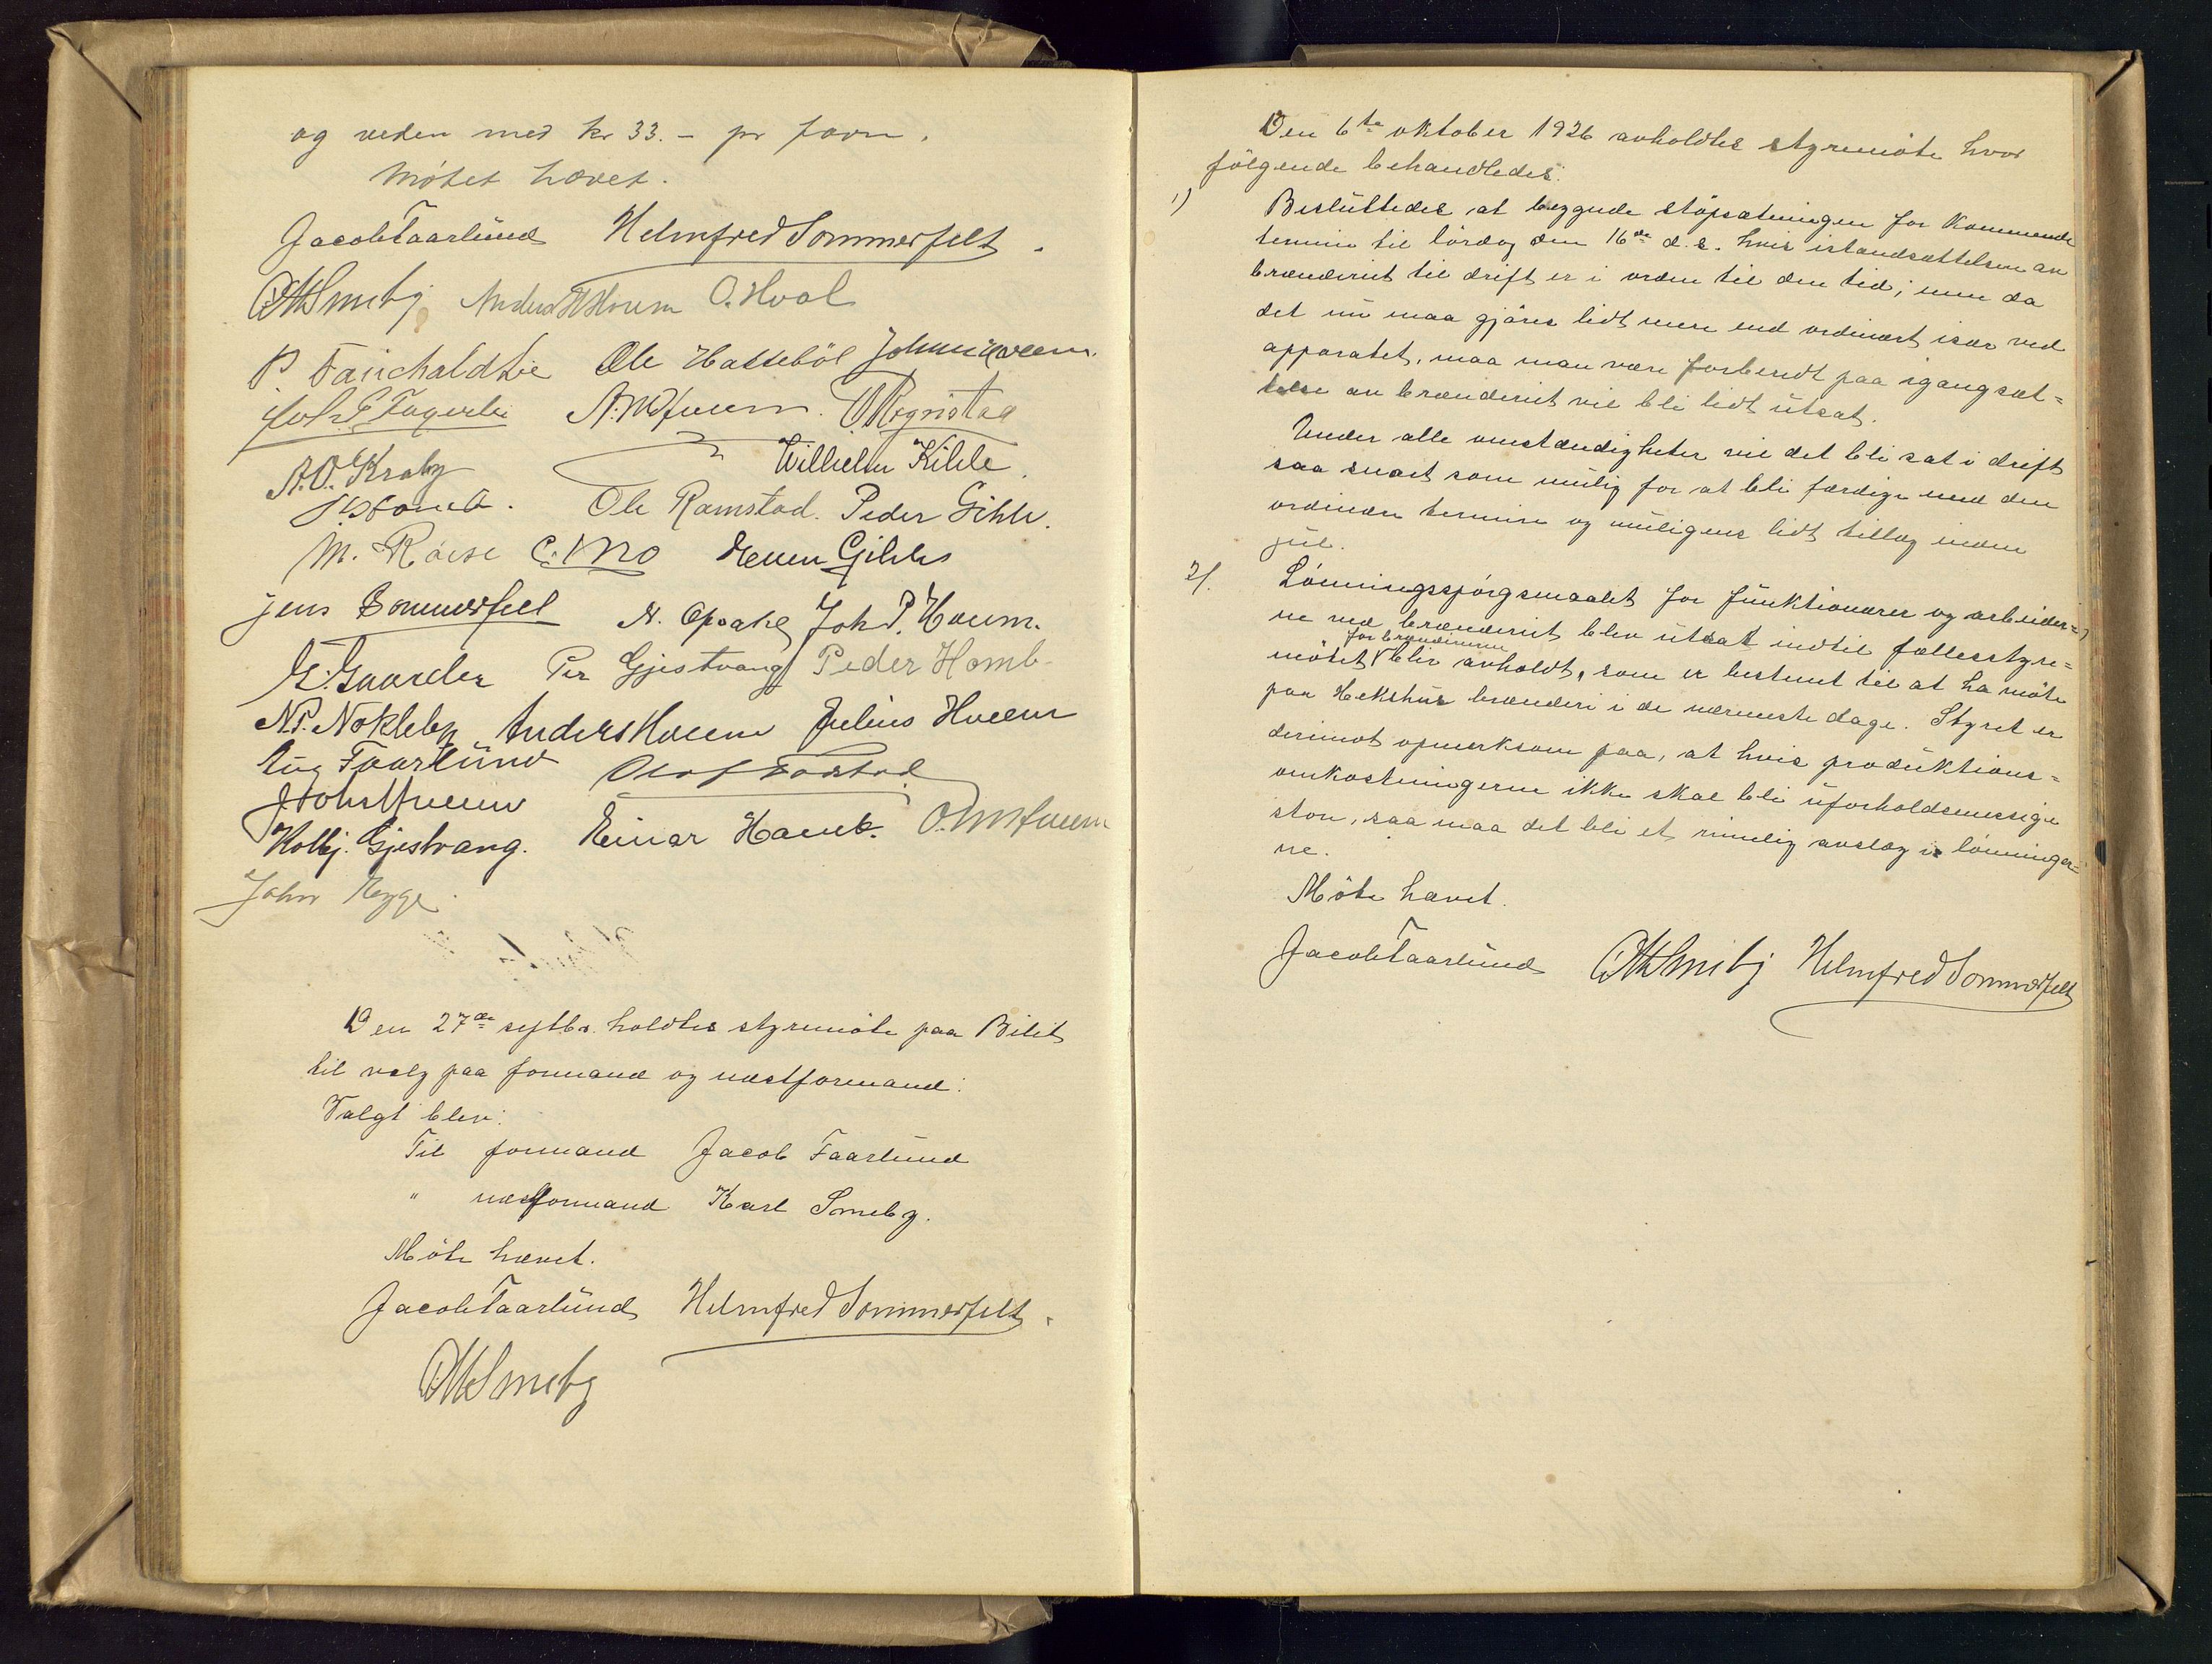 og veden med kr 33.- pr favn.
Mötet hævet.
Jacob Faarlund Helmfred Sommerfelt.
Smeby Anders Hoem O. Hval
P. Fauchald Lie Ole Hasseböl Johan Hveem.
Joh. P. Fagerli A. M. Hveem. O Røgnstad
A. O. Kraby
Wilhelm Kihle.
Ole Ramstad. Peder Gihle.
M. Röise C. Mo Even Gihle
Jens Sommerfelt N. Opsahl Joh. P. Hoem.
G. Gaarder Per Gjestvang Peder Homb
N. P. Nökleby Anders Hveem Julius Hveem
Aug Faarlund Olaf
Johs Hveem
Kolbj. Gjestvang. Einar Homb. O. M. Hveem
John Rogge.
Den 27de septbr. holdtes styremöte paa Bilit
til valg paa formand og næstformand:
Valgt blev:
Til formand Jacob Faarlund
" næstformand Karl Smeby.
Möte hævet.
Jacob Faarlund Helmfred Sommerfelt.
Smeby
Den 6te oktober 1926 avholdtes styremöte hvor
fölgende behandledes:
1) Besluttedes at begynde stöpsætningen for kommende
termin til lördag den 16de d. s. hvis istandsættelsen av
brænderiet til drift er i orden til den tid; men da
det nu maa gjöres lidt mere end ordinært især ved
apparatet, maa man være forberedt paa igangsæt=
telse av brænderiet vil bli lidt utsat.
Under alle omstændigheter vil det bli sat i drift
saa snart som mulig for at bli færdige med den
ordinære termin og muligens lidt tillæg inden
jul.
2). Lönningsspörgsmaalet for funktionærer og arbeider=
ne ved brænderiet blev utsat indtil fællesstyre=
for brænderierne
mötet blir avholdt, som er bestemt til at ha möte
paa Hekshus brænderi i de nærmeste dage. Styret er
derimot opmerksom paa, at hvis produktions=
omkostningerne ikke skal bli uforholdsmessige
store, saa maa det bli et rimelig avslag i lönninger=
ne.
Möte hævet.
Jacob Faarlund Smeby Helmfred Sommerfelt